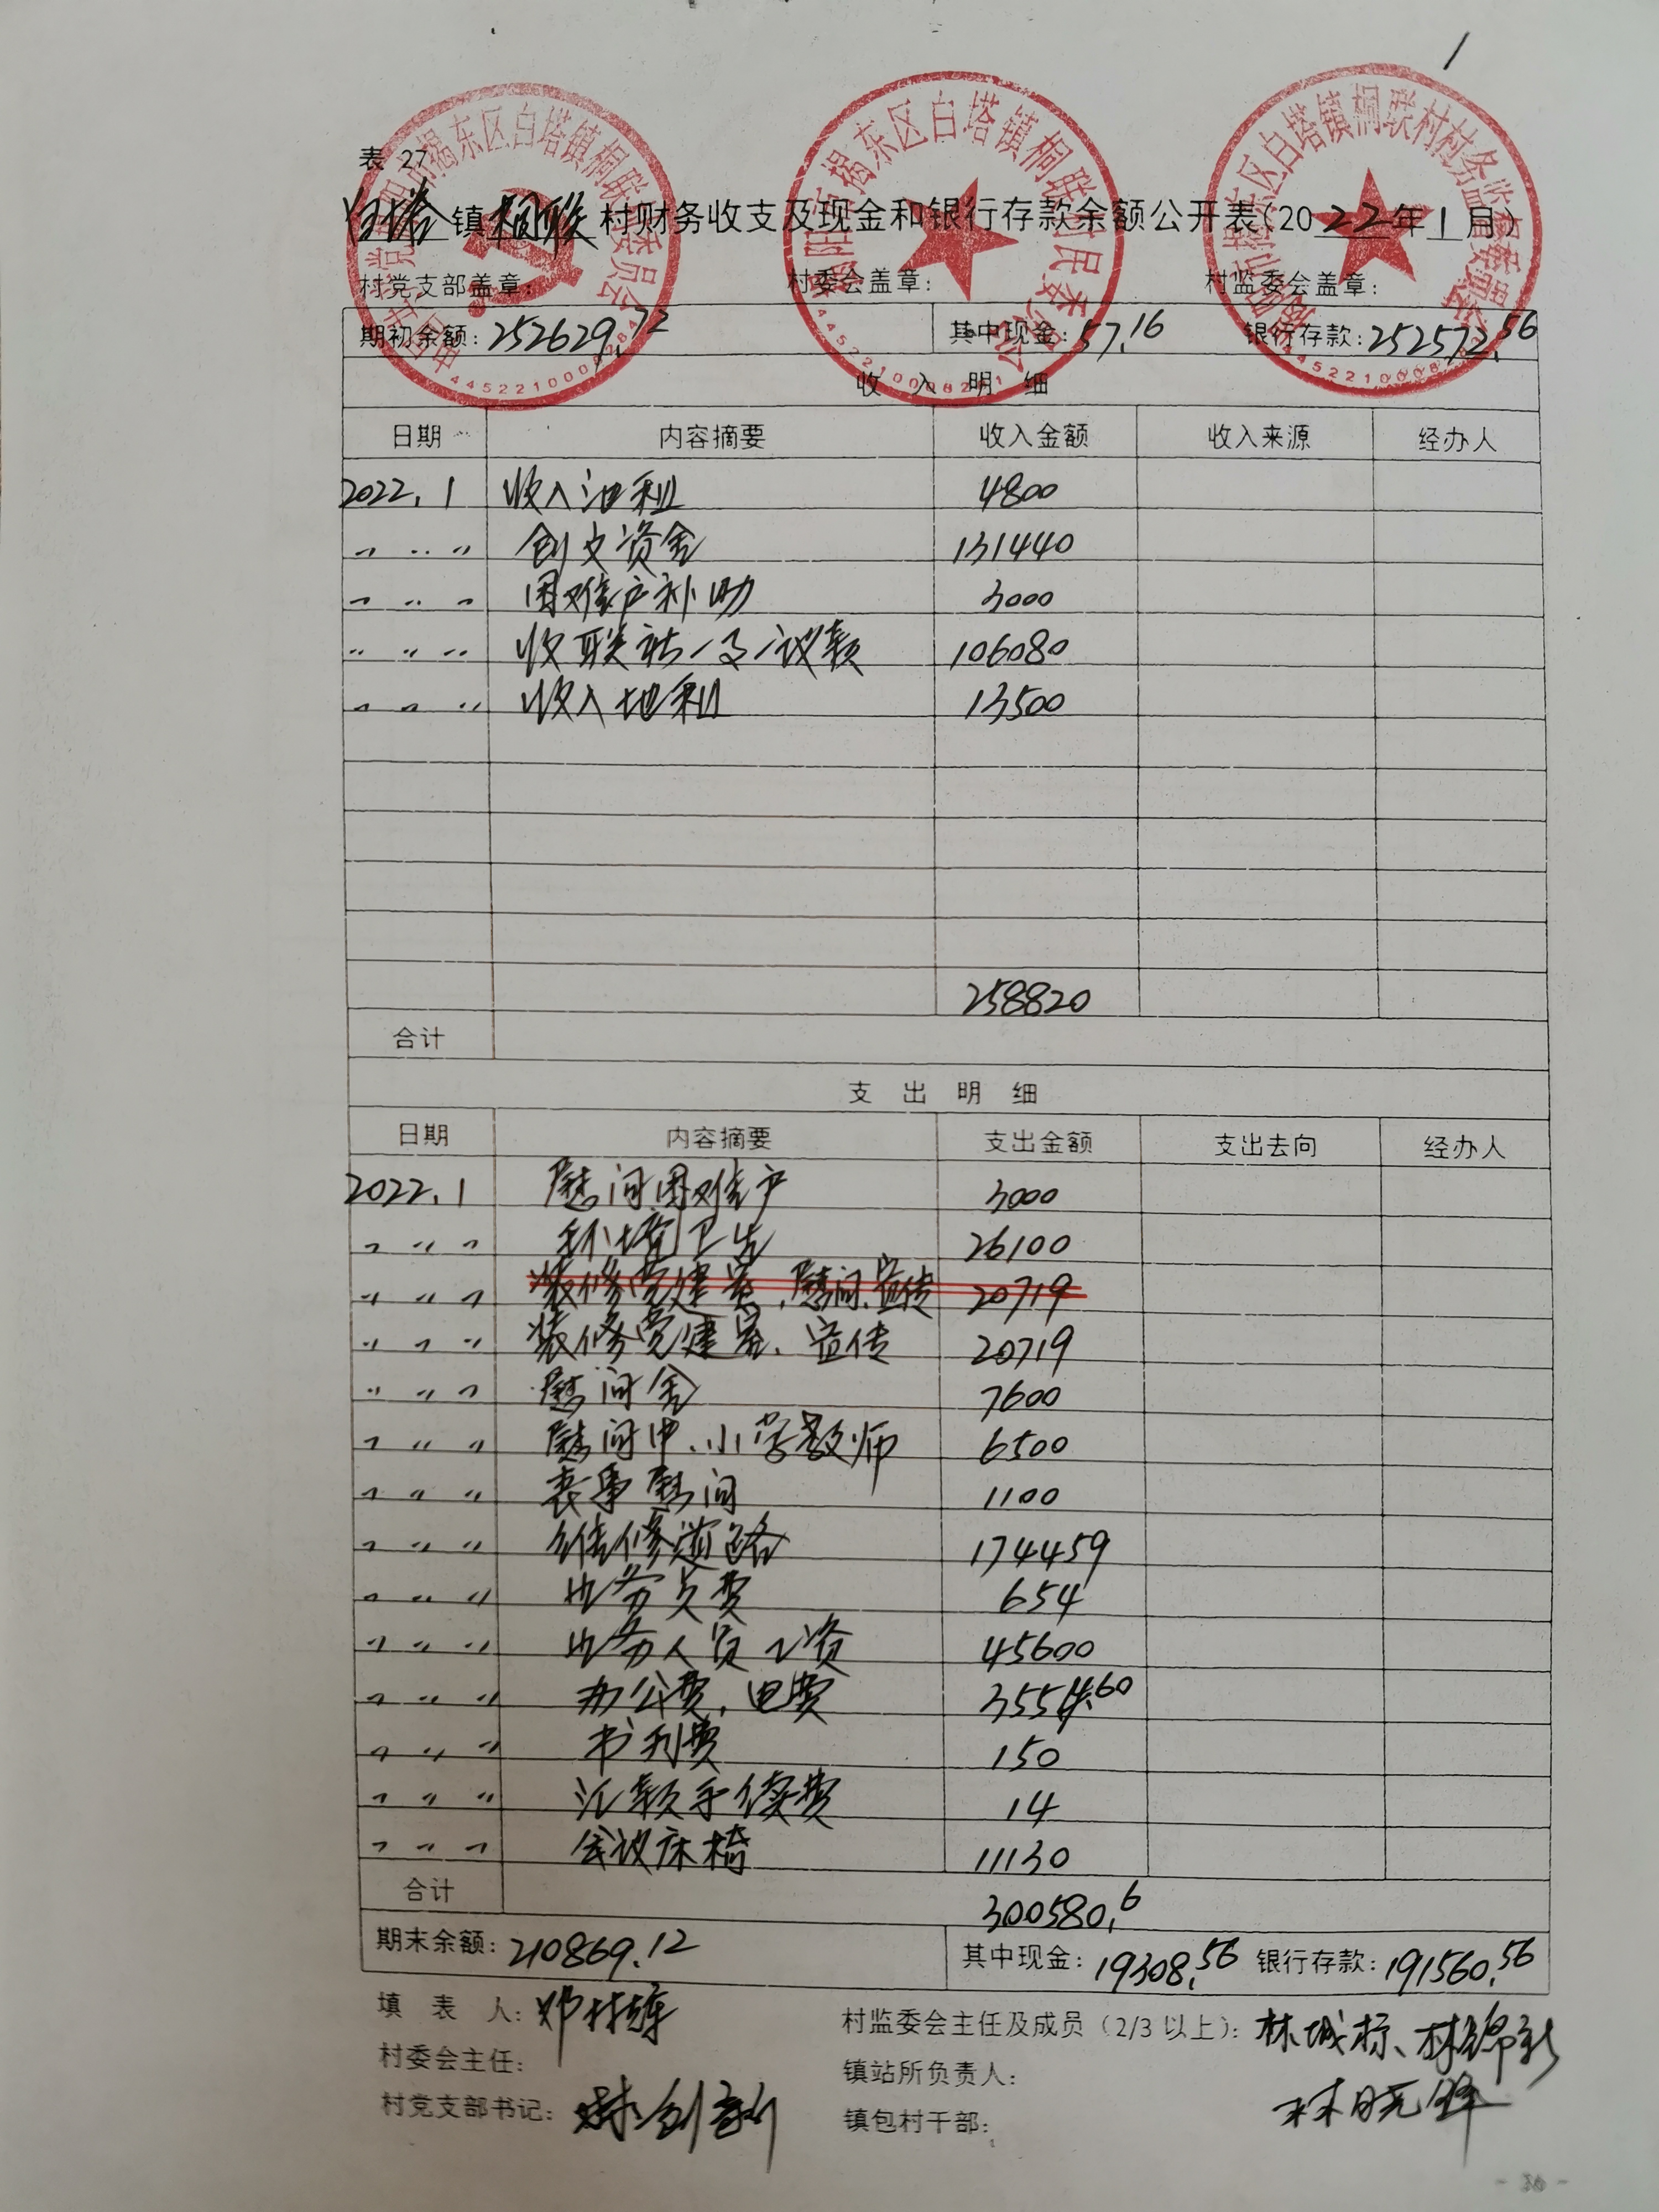 表 27
白塔镇桐联村财务收支及现金和银行存款余额公开表(2022年1月)
村党支部盖章: 村委会盖章: 村监委会盖章:
期初余额:252629.72 其中现金:57.16 银行存款:252572.56
收 入 明 细
日期 内容摘要 收入金额 收入来源 经办人
2022.1 收入池利 4800
〃 〃 〃 创文资金 131440
〃 〃 〃 困难户补助 3000
〃 〃 〃 收联社一事一议款 106080
〃 〃 〃 收入地利 13500
258820
合计
支 出 明 细
日期 内容摘要 支出金额 支出去向 经办人
2022.1 慰问困难户 3000
〃 〃 〃 环境卫生 26100
〃 〃 〃 装修党建室、慰问、宣传 20719
〃 〃 〃 装修党建室、宣传 20719
〃 〃 〃 慰问金 7600
〃 〃 〃 慰问中、小学教师 6500
〃 〃 〃 丧事慰问 1100
〃 〃 〃 维修道路 174459
〃 〃 〃 费 654
〃 〃 〃 人员工资 45600
〃 〃 〃 办公费、电费 3554.60
〃 〃 〃 书刊费 150
〃 〃 〃 汇款手续费 14
〃 〃 〃 11130
合计 300580.6
期末余额:210869.12 其中现金:19308.56 银行存款:191560.56
填 表 人:邓 村监委会主任及成员(2/3以上):林城标、林锦彭
村委会主任: 镇站所负责人: 林晓锋
村党支部书记: 镇包村干部:
- 36 -